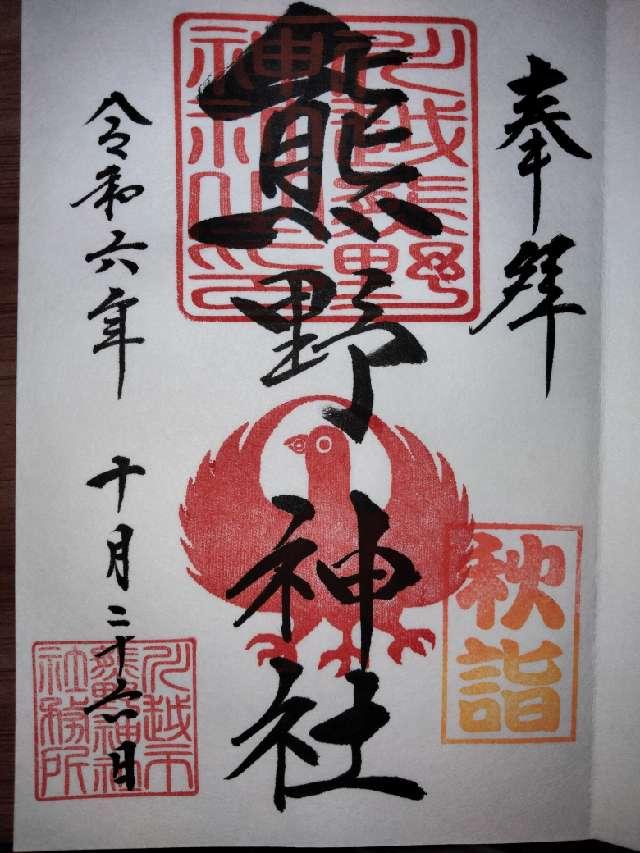 奉拝
川越熊野
神社之印
熊野神社
秋詣
令和六年 十月二十六日
川越市
熊野神社
社務所